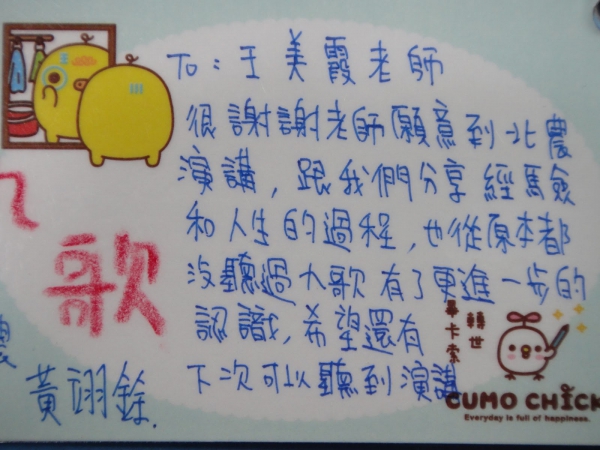 To：王美霞老師
很謝謝老師願意到北農
演講，跟我們分享經驗
和人生的過程，也從原本都
沒聽過ㄟ歌有了更進一步的
認識，希望還有
下次可以聽到演講
黃翊銓.
ㄟ歌
轉世
畢卡索
CUMO CHICK
Everyday is full of happiness.